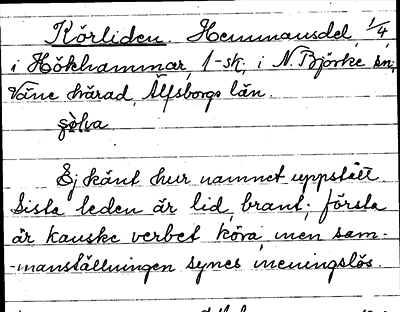 Körliden. Hemmansdel, 1/4,
i Hökhammar, 1-sk, i N. Björke sn,
Väne härad, Älfsborgs län.
Ej känt hur namnet uppstått
Sista leden är lid, brant; första
är kanske verbet köra, men sam-
-manställningen synes meningslös.